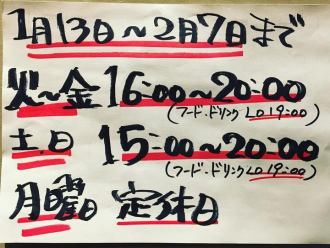 1月13日～2月7日まで
火～金 16:00～20:00
(フード・ドリンクLO19:00)
土日 15:00～20:00
(フード・ドリンクLO19:00)
月曜日 定休日